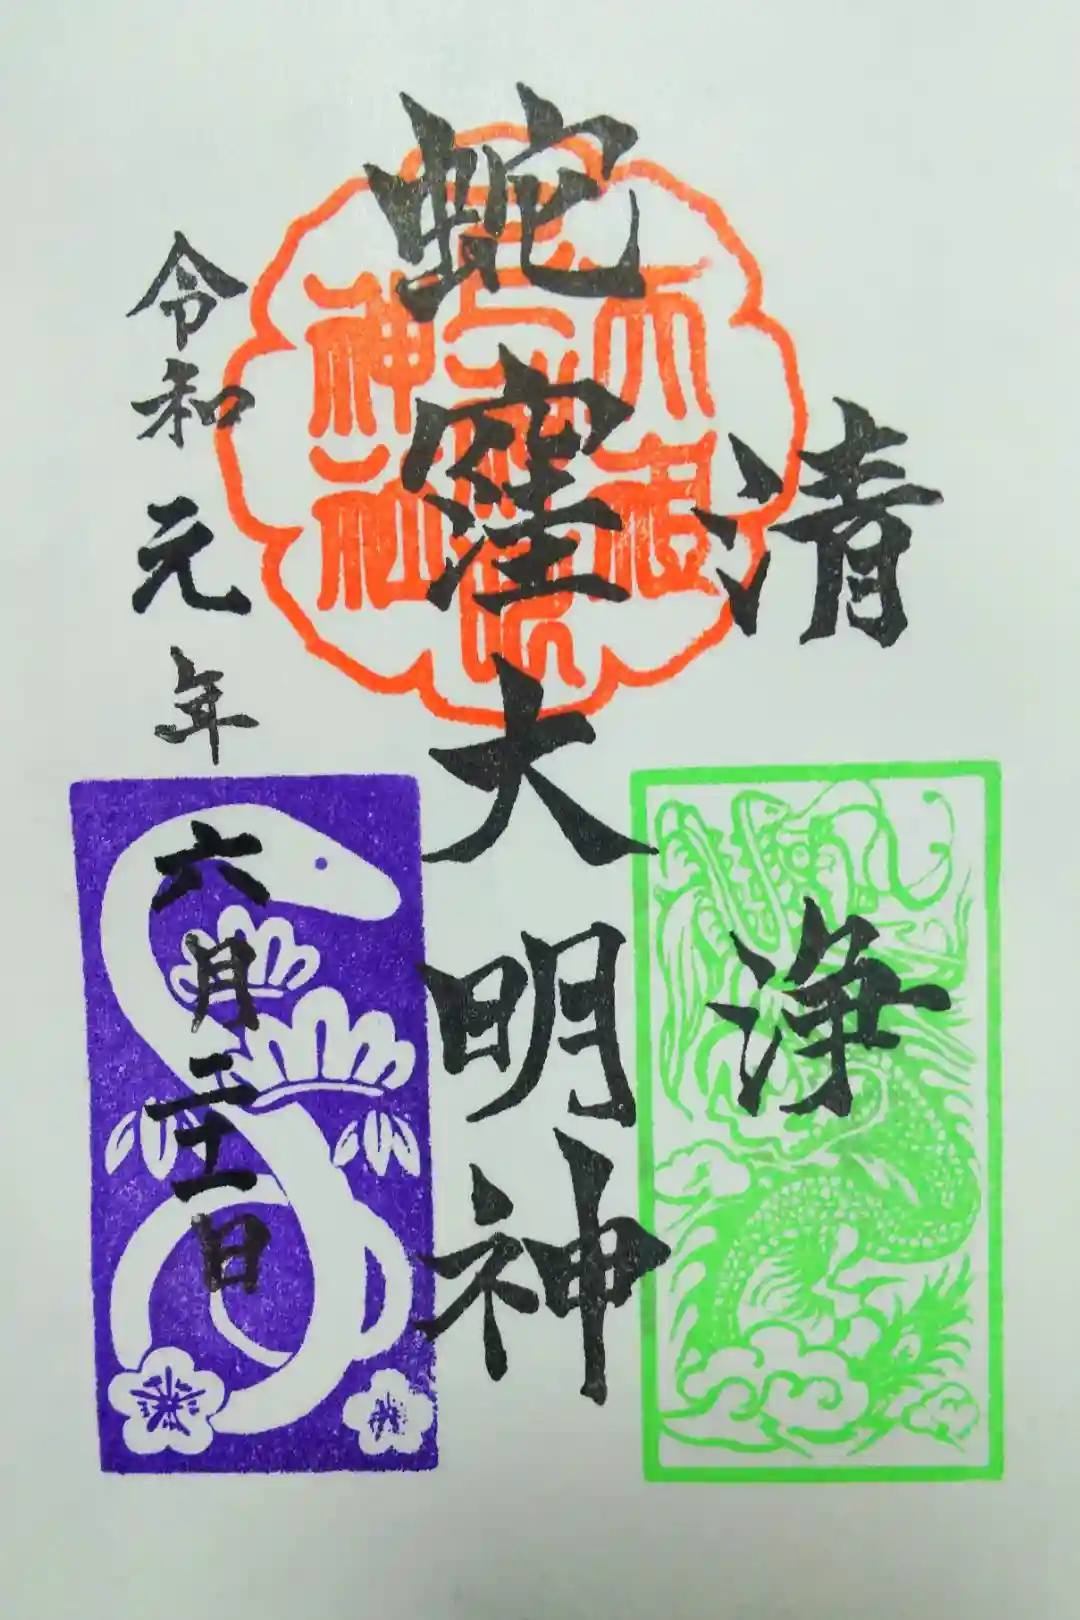 清浄
蛇窪大明神
令和元年六月二十一日
神社